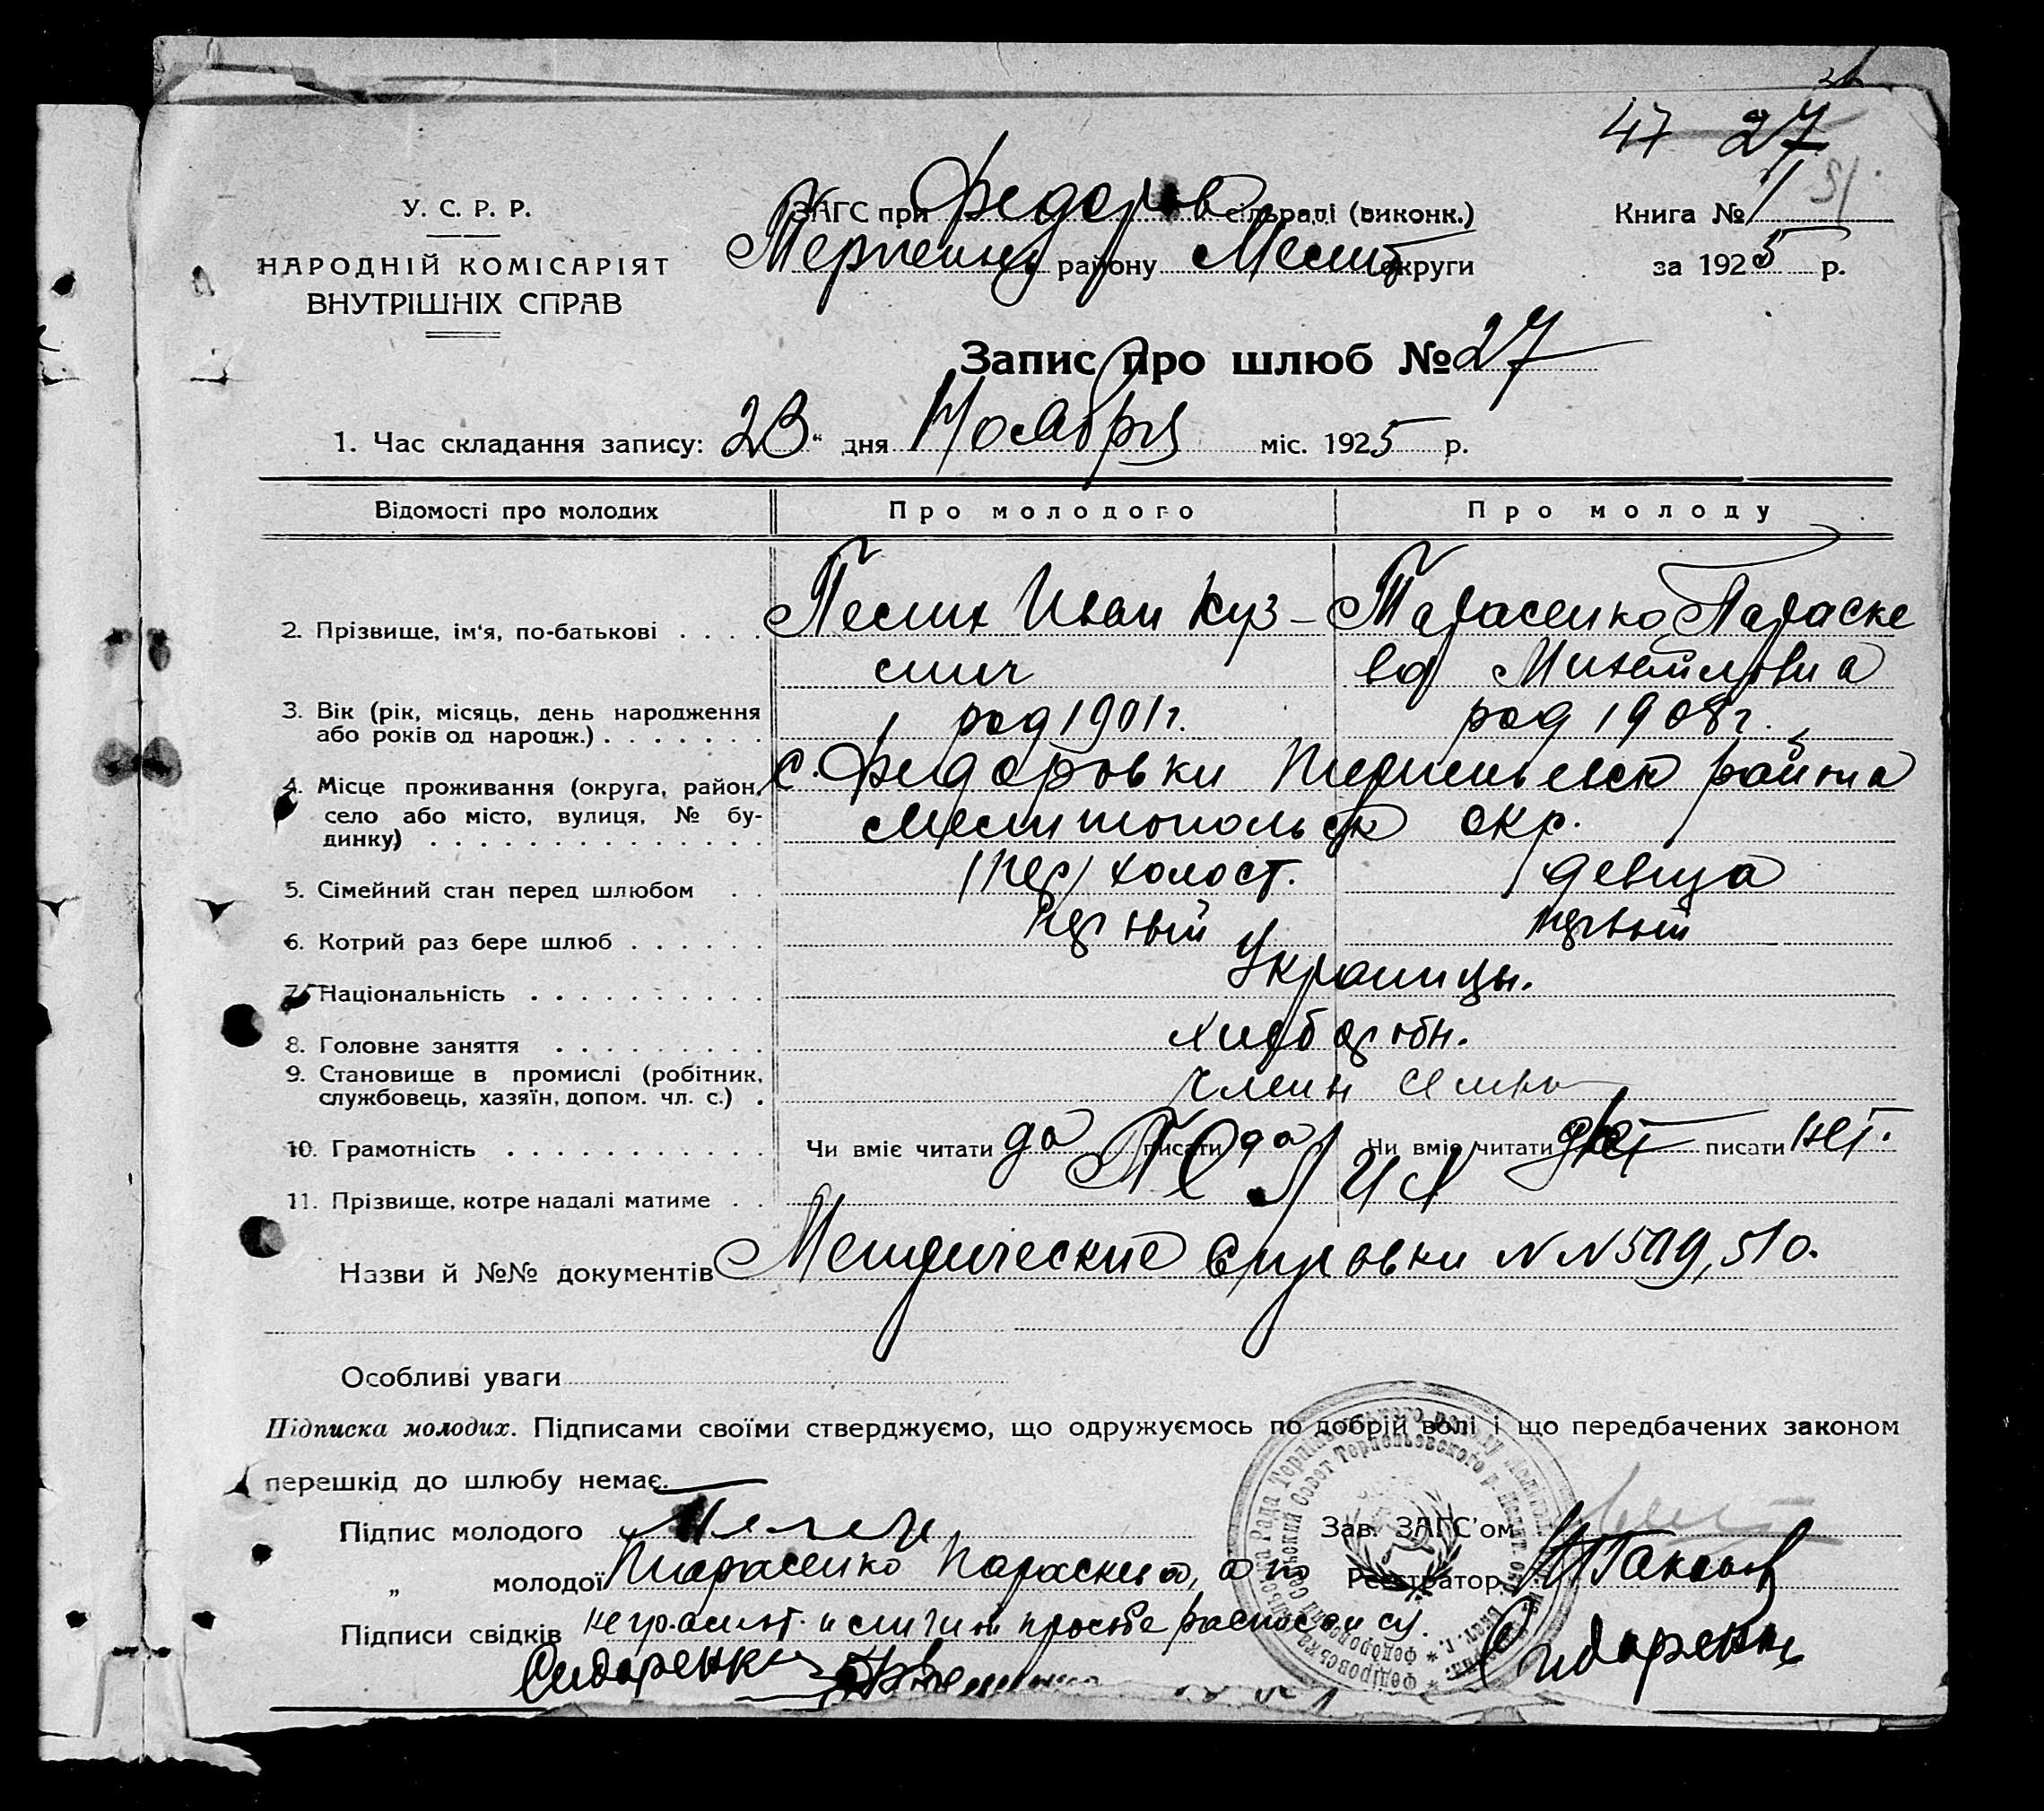 47 27
У. С. Р. Р.
НАРОДНІЙ КОМІСАРІЯТ
ВНУТРІШНІХ СПРАВ
ЗАГС при Федоров сільраді (виконк.)
Терпеньев району Мелит округи
Книга № 1 51
за 1925 р.
Запис про шлюб № 27
1. Час складання запису: 23 " дня Ноября міс. 1925 р.
Відомості про молодих Про молодого Про молоду
2. Прізвище, ім'я, по-батькові . . . . Пелих Иван Куз- Тарасенко Параске
мич ва Михайловна
3. Вік (рік, місяць, день народження
або років од народж.) . . . . . . . род 1901 г. род 1908 г.
4. Місце проживання (округа, район, с. Федоровки Терпеньевск района
село або місто, вулиця, № бу-
динку) . . . . . . . . . . . . . . Мелитопольск окр.
5. Сімейний стан перед шлюбом . . холост. девица
6. Котрий раз бере шлюб . . . . . . первый первый
7. Національність . . . . . . . . . . Украинцы.
8. Головне заняття . . . . . . . . . хлебороbн.
9. Становище в промислі (робітник,
службовець, хазяїн, допом. чл. с.) . член семьи
10. Грамотність . . . . . . . . . . . Чи вміє читати да писати да Чи вміє читати нет писати нет.
11. Прізвище, котре надалі матиме . . Пелих
Назви й №№ документів Метрические справки N N 509, 510.
Особливі уваги
Підписка молодих. Підписами своїми стверджуємо, що одружуємось по добрій волі і що передбачених законом
перешкід до шлюбу немає.
Підпис молодого Пелих Зав. ЗАГС'ом
„ молодої Тарасенко Параскева, а по Реєстратор
Підписи свідків неграмот. и личной просьбе расписался
Сидоренко Сидоренко